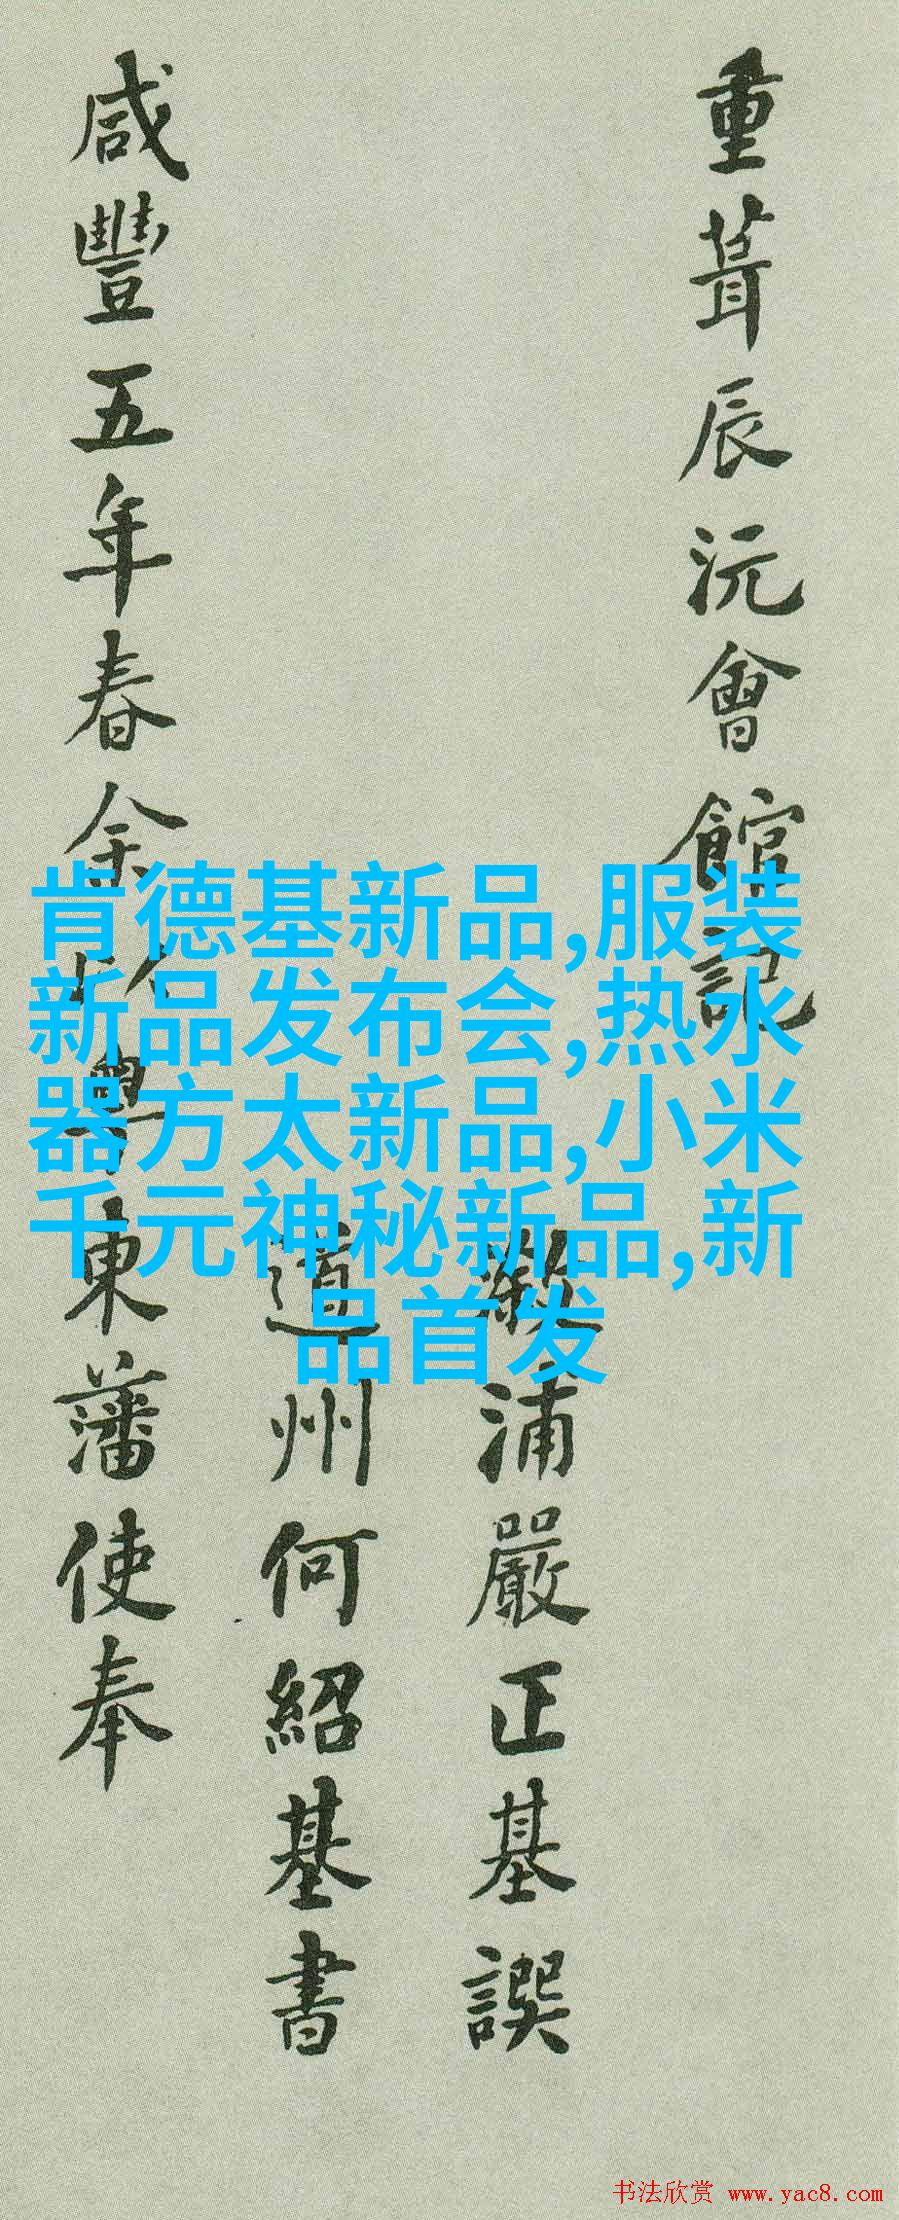 重葺辰沅會館記
溆浦嚴正基譔
道州何紹基書
咸豐五年春余以粵東藩使奉
肯德基新品,服装
新品发布会,热水
器方太新品,小米
千元神秘新品,新
品首发
书法欣赏 www.yac8.com